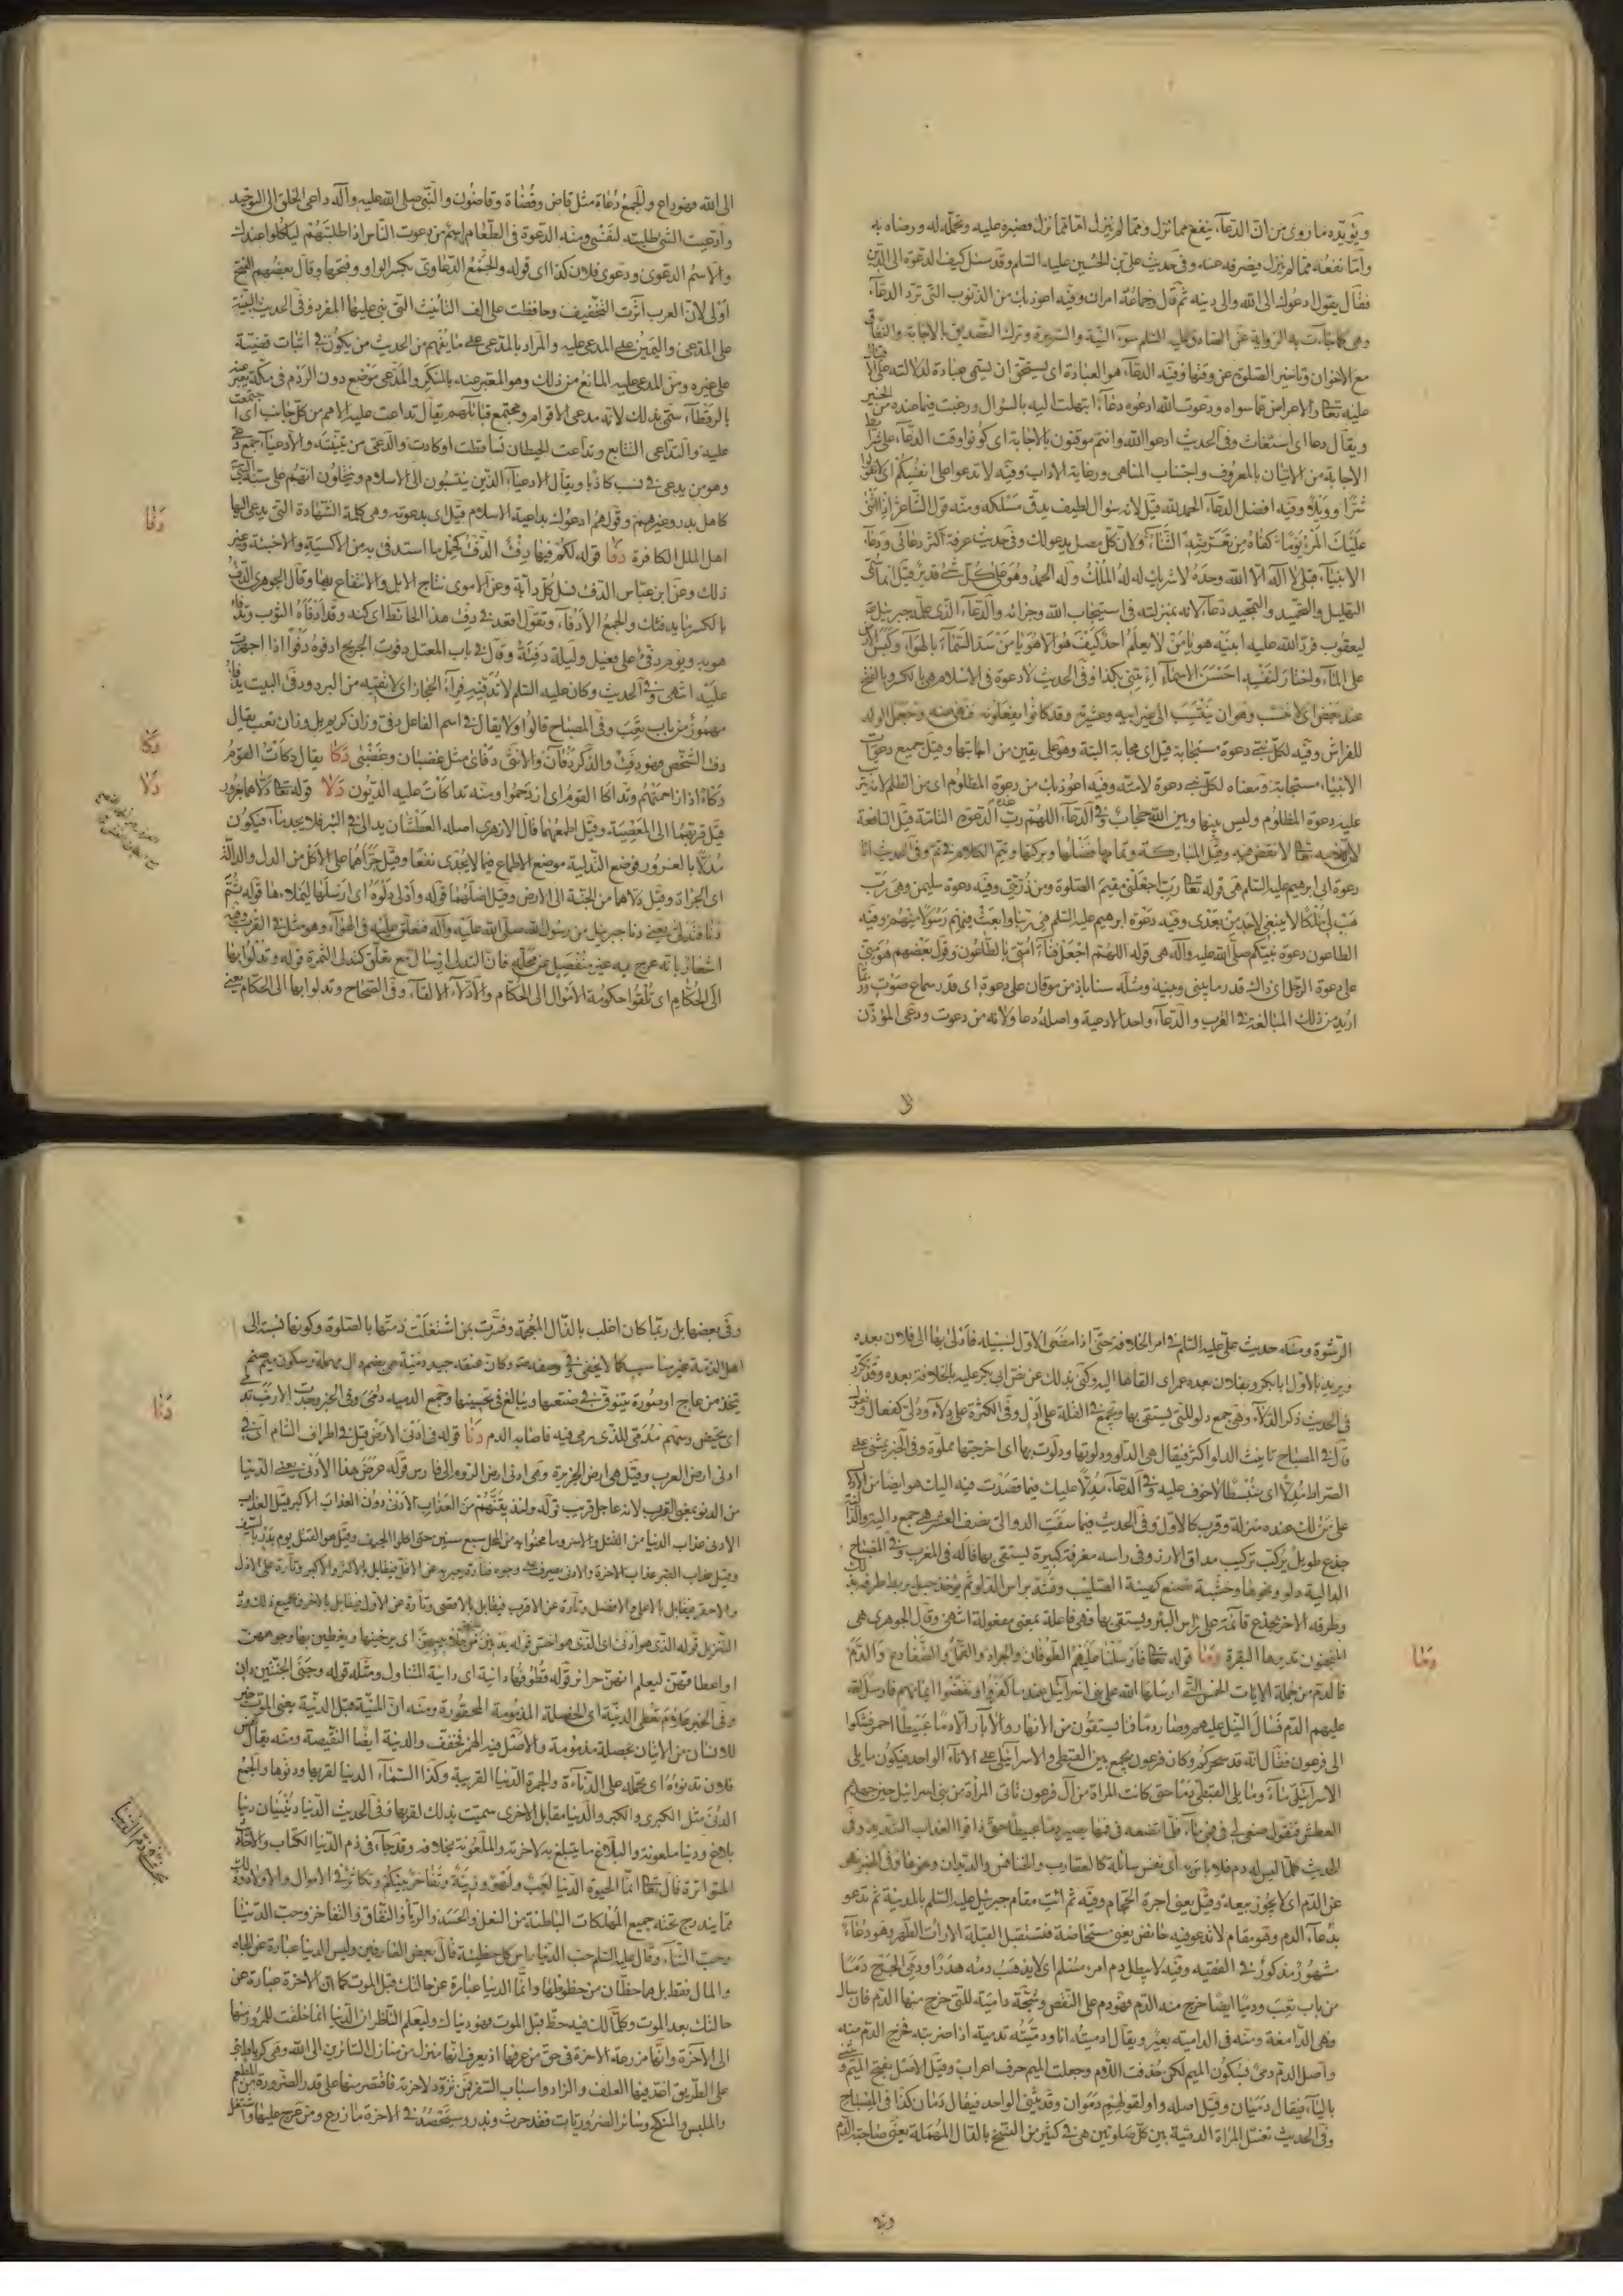 ويؤيده ما روى من ان الدعاء ينفع مما نزل ومما لم ينزل اما مما نزل فصبره عليه وتحمله له ورضاه به
واما نفعه مما لم ينزل فيصرفه عنه وفى حديث على بن الحسين عليه السلم وقد سئل كيف الدعوة الى الدين
فقال يقول ادعوك الى الله والى دينه ثم قال وجماعه امران وفيه اعوذ بك من الذنوب التى ترد الدعاء
وهى كما جاءت به الرواية عن الصادق عليه السلم سوء النية والسريرة وترك التصديق بالاجابة والنفاق
مع الاخوان وتاخير الصلوة عن وقتها وفيه الدعاء هو العبادة اى يستحق ان يسمى عبادة لدلالته على الاقبال
عليه تعالى والاعراض عما سواه ودعوت الله ادعوه دعاء ابتهلت اليه بالسؤال ورغبت فيما عنده من الخير
ويقال دعا اى استغاث وفى الحديث ادعوا الله وانتم موقنون بالاجابة اى كونوا وقت الدعاء على شرائط
الاجابة من الاتيان بالمعروف واجتناب المناهى ورعاية الاداب وفيه لا تدعوا على انفسكم اى لا تقولوا
شرا وويلا وفيه افضل الدعاء الحمد لله قيل لانه سؤال لطيف يدق مسلكه ومنه قول الشاعر اذا اثنى
عليك المرء يوما كفاه من تعرضه الثناء ولان كل مصل يدعو لك وفى حديث عرفة اكثر دعائى ودعاء
الانبياء قبلى لا اله الا الله وحده لا شريك له له الملك وله الحمد وهو على كل شئ قدير قيل انما سمى
التهليل والتحميد والتمجيد دعاء لانه بمنزلته فى استيجاب الله وجزائه والدعاء الذى علمه جبرئيل
ليعقوب فرد الله عليه ابنيه هو يا من لا يعلم احد كيف هو الا هو يا من سد السماء بالهواء وكبس الارض
على الماء واختار لنفسه احسن الاسماء ائتنى بكذا وفى الحديث لا دعوة فى الاسلام هى بالكسر وبالفتح
عند بعض اى لا تنسب وهو ان ينتسب الى غير ابيه وعشيرته وقد كانوا يفعلونه فنهى عنه وجعل الولد
للفراش وفيه لكل نبى دعوة مستجابة قيل اى مجابة البتة وهو على يقين من اجابتها وقيل جميع دعوات
الانبياء مستجابة ومعناه لكل نبى دعوة لامته وفيه اعوذ بك من دعوة المظلوم اى من الظلم لانه يترتب
عليه دعوة المظلوم وليس بينها وبين الله حجاب وفى الدعاء اللهم رب هذه الدعوة التامة قيل النافعة
دعوة ابى ابرهيم عليه السلم هى قوله تعالى رب اجعلنى مقيم الصلوة ومن ذريتى وفيه دعوة سليمن وهى رب
هب لى ملكا لا ينبغى لاحد من بعدى وفيه دعوة ابرهيم عليه السلم هى ربنا وابعث فيهم رسولا منهم وفيه
الطاعون دعوة نبيكم صلى الله عليه وآله هى قوله اللهم اجعل فناء امتى بالطاعون وقول بعضهم هو منى
على دعوة الرجل اى ذاك قدر ما بينى وبينه ومثله سناباذ من موقان على دعوة اى قدر سماع صوت وربما
اريد من ذلك المبالغة فى القرب والدعاء واحد الادعية واصله دعا ولانه من دعوت ودعى المؤذن
الى
الى الله فهو داع والجمع دعاة مثل قاض وقضاة وقاضون والنبى صلى الله عليه وآله داعى الخلق الى التوحيد
وادعيت الشئ طلبته لنفسى ومنه الدعوة فى الطعام اسم من دعوت الناس اذا طلبتهم لياكلوا عندك
والاسم الدعوى ودعوى فلان كذا اى قوله والجمع الدعاوى بكسر الواو وفتحها وقال بعضهم الفتح
اولى لان العرب آثرت التخفيف وحافظت على الف التأنيث التى بنى عليها المفرد وفى الحديث البينة
على المدعى واليمين على المدعى عليه والمراد بالمدعى على ما يفهم من الحديث من يكون فى اثبات قضية
على غيره ومن المدعى عليه المانع من ذلك وهو المعبر عنه بالمنكر والمدعى موضع دون الردم فى مكة يعبر عنه
بالرقطاء سمى بذلك لانه مدعى الاقوام ومجتمع قبائلهم يقال تداعت عليه الامم من كل جانب اى اجتمعت
عليه والتداعى التتابع وتداعت الحيطان تساقطت او كادت والدعى من تبنيته والادعياء جمع دعى
وهو من يدعى فى نسب كاذبا ويقال الادعياء الذين ينتسبون الى الاسلام وينتحلون انهم على سنة النبى
كاهل بدر وغيرهم وقولهم ادعوك بداعية الاسلام قيل اى بدعوته وهى كلمة الشهادة التى يدعى اليها
اهل الملل الكافرة دفا قوله لكم فيها دفء الدفء كحمل ما استدفى به من الاكسية والاخبية وغير
ذلك وعن ابن عباس الدفء نسل كل دابة وعن الاموى نتاج الابل والانتفاع بها وقال الجوهرى الدفء
بالكسر ما يدفئك والجمع الادفاء وتقول اقعد فى دفء هذا الحائط اى كنه وقد ادفاه الثوب وتدفا
هو به ويوم دفئ على فعيل وليلة دفيئة وقال فى باب المعتل دفوت الجريح ادفوه دفوا اذا اجهزت
عليه انتهى وفى الحديث وكان عليه السلم لا تدفيه فراء الحجاز اى لا تقيه من البرد ودفى البيت يدفا
مهموز من باب تعب وفى المصباح قالوا ولا يقال فى اسم الفاعل دفئ وزان كريم بل وزان تعب يقال
دفئ الشخص فهو دفئ والذكر دفآن والانثى دفاى مثل غضبان وغضبى دكا يقال دكات القوم
دكاء اذا زاحمتهم وتداكا القوم اى ازدحموا ومنه تداكات عليه الديون دلا قوله تعالى دلاهما بغرور
قيل قربهما الى المعصية وقيل اطمعهما قال الازهرى اصله العطشان يدلى فى البئر فلا يجد ماء فيكون
مدلا بالغرور فوضع التدلية موضع الاطماع فيما لا يجدى نفعا وقيل جراهما على الاكل من الدل والدالة
اى الجراة وقيل دلاهما من الجنة الى الارض وقيل اضلهما قوله وادلى دلوه اى ارسلها ليملاها قوله ثم
دنا فتدلى يعنى دنا جبرئيل من رسول الله صلى الله عليه وآله فتعلق عليه فى الهواء وهو مثل فى القرب وفيه
اشعار بانه عرج به غير منفصل عن محله فان التدلى ارسال مع تعلق كتدلى الثمرة قوله وتدلوا بها
الى الحكام اى تلقوا حكومة الاموال الى الحكام والادلاء الالقاء وفى الصحاح وتدلوا بها الى الحكام يعنى
دفا
دكا
دلا
الرشوة ومنه حديث على عليه السلم فى امر الخلافة حتى اذا مضى الاول لسبيله فادلى بها الى فلان بعده
ويريد بالاول ابا بكر وبفلان بعده عمر اى القاها اليه وكنى بذلك عن نص ابى بكر عليه بالخلافة بعده وقد تكرر
فى الحديث ذكر الدلاء وهى جمع دلو للتى يستقى بها ويجمع فى القلة على ادل وفى الكثرة على دلاء ودلى كفعال وفعول
قال فى المصباح تانيث الدلو اكثر فيقال هى الدلو ودلوتها ودلوت بها اى اخرجتها مملوة وفى الخبر يمشى على
الصراط مدلا اى منبسطا لا خوف عليه وفى الدعاء مدلا عليك فيما قصدت فيه اليك هو ايضا من الادلال
على من لك عنده منزلة وقرب كالاول وفى الحديث فيما سقت الدوالى نصف العشر هى جمع دالية والدالية
جذع طويل يركب تركيب مداق الارز وفى راسه مغرفة كبيرة يستقى بها قاله فى المغرب وفى المصباح
الدالية دلو ونحوها وخشبة تصنع كهيئة الصليب وتشد براس الدلو ثم يؤخذ حبل يربط طرفه بذلك
وطرفه الاخر بجذع قائمة على راس البئر ويستقى بها فهى فاعلة بمعنى مفعولة انتهى وقال الجوهرى هى
المنجنون تديرها البقرة دما قوله تعالى فارسلنا عليهم الطوفان والجراد والقمل والضفادع والدم
فالدم من جملة الايات الخمس التى ارسلها الله على بنى اسرائيل عند ما كفروا ونقضوا ايمانهم فارسل الله
عليهم الدم فسال النيل عليهم وصار دما فما يستقون من الانهار والابار الا دما عبيطا احمر فشكوا
الى فرعون فقال انه قد سحركم وكان فرعون يجمع بين القبطى والاسرائيلى على الاناء الواحد فيكون ما يلى
الاسرائيلى ماء وما يلى القبطى دما حتى كانت المراة من آل فرعون تاتى المراة من بنى اسرائيل حين جهدهم
العطش فتقول صبى لى فى فمى ماء فلما تضعه فى فيها يصير دما عبيطا حتى ذاقوا العذاب الشديد وفى
الحديث كلما ليس له دم فلا باس به اى نفس سائلة كالعقارب والخنافس والديدان ونحوها وفى الخبر نهى
عن الدم اى لا يجوز بيعه وقيل يعنى اجرة الحجام وفيه ثم ائت مقام جبرئيل عليه السلم بالمدينة ثم تدعو
بدعاء الدم وهو مقام لا تدعو فيه حائض يعنى مستحاضة فتستقبل القبلة الا رات الطهر وهو دعاء
مشهور مذكور فى الفقيه وفيه لا يطل دم امرء مسلم اى لا يذهب دمه هدرا ودمى الجرح دما
من باب تعب ودميا ايضا خرج منه الدم فهو دم على النقص وشجة دامية للتى خرج منها الدم فان سال
وهى الدامغة ومنه فى الدامية بعير ويقال ادميته انا ودميته تدمية اذا ضربته فخرج الدم منه
واصل الدم دمى بسكون الميم لكن حذفت اللام وجعلت الميم حرف اعراب وقيل الاصل بفتح الميم ويثنى
بالياء فيقال دميان وقيل اصله واو لقولهم دموان وقد يثنى الواحد فيقال دمان كذا فى المصباح
وفى الحديث تغتسل المراة الدمية بين كل صلوتين هى فى كثير من النسخ بالدال المهملة يعنى صاحبة الدم
دما
وفى
وفى بعضها بل ربما كان اغلب بالذال المعجمة وفسرت بمن اشتغلت ذمتها بالصلوة وكونها نسبة الى
اهل الذمة غير مناسب كما لا يخفى وفى وصفه ص وكان عنقه جيد دمية هى بضم دال مهملة وسكون ميم صنم
يتخذ من عاج او صورة يتنوق فى صنعتها ويبالغ فى تحسينها وجمع الدمية دمى وفى الخبر وجدت الارنب تدمى
اى تحيض وسهم مدمى للذى رمى فيه فاصابه الدم دنا قوله فى ادنى الارض قيل فى اطراف الشام اى فى
ادنى ارض العرب وقيل هى ارض الجزيرة وهى ادنى ارض الروم الى فارس قوله عرض هذا الادنى يعنى الدنيا
من الدنو بمعنى القرب لانه عاجل قريب قوله ولنذيقنهم من العذاب الادنى دون العذاب الاكبر قيل العذاب
الادنى عذاب الدنيا من القتل والاسر وما محنوا به من المحل سبع سنين حتى اكلوا الجيف وقيل هو القتل يوم بدر بالسيف
وقيل عذاب القبر عذاب الاخرة والادنى يصرف على وجوه فتارة يعبر به عن الاقل فيقابل بالاكثر والاكبر وتارة على الارذل
والاحقر فيقابل بالاعلى والافضل وتارة عن الاقرب فيقابل بالاقصى وتارة عن الاول فيقابل بالاخر وبجميع ذلك ورد
التنزيل قوله الذى هو ادنى اى الذى هو اخس قوله يدنين عليهن من جلابيبهن اى يرخينها ويغطين بها وجوههن
واعطافهن ليعلم انهن حرائر قوله قطوفها دانية اى دانية المتناول ومثله قوله وجنى الجنتين دان
وفى الخبر علام نعطى الدنية اى الخصلة المذمومة المحقورة ومنه ان المنية قبل الدنية يعنى الموت خير
للانسان من الاتيان بخصلة مذمومة والاصل فيه الهمز فخفف والدنية ايضا النقيصة ومنه يقال نفس
فلان تدنوه اى تحمله على الدناءة والجمرة الدنيا القريبة وكذا السماء الدنيا لقربها ودنوها والجمع
الدنى مثل الكبرى والكبر والدنيا مقابل الاخرى سميت بذلك لقربها وفى الحديث الدنيا دنييان دنيا
بلاغ ودنيا ملعونة والبلاغ ما يتبلغ به لاخرته والملعونة بخلافه وقد جاء فى ذم الدنيا الكتاب والاحاديث
المتواترة قال تعالى انما الحيوة الدنيا لعب ولهو وزينة وتفاخر بينكم وتكاثر فى الاموال والاولاد وذلك
مما يندرج تحته جميع المهلكات الباطنة من الغل والحسد والريا والنفاق والتفاخر وحب الدنيا
وحب النساء وقال عليه السلم حب الدنيا راس كل خطيئة قال بعض العارفين وليس الدنيا عبارة عن الجاه
والمال فقط بل هما حظان من حظوظها وانما الدنيا عبارة عن حالتك قبل الموت كما ان الاخرة عبارة عن
حالتك بعد الموت وكل ما لك فيه حظ قبل الموت فهو دنياك وليعلم الناظر ان الدنيا انما خلقت للمرور منها
الى الآخرة وانها مزرعة الاخرة فى حق من عرفها اذ يعرف انها منزل من منازل السائرين الى الله وهى كرباط بنى
على الطريق اعد فيها العلف والزاد واسباب السفر فمن تزود لاخرته فاقتصر منها على قدر الضرورة من المطعم
والملبس والمنكح وسائر الضروريات فقد حرث وبذر وسيحصد فى الاخرة ما زرع ومن عرج عليها واشتغل
دنا
بحث فى ذم الدنيا